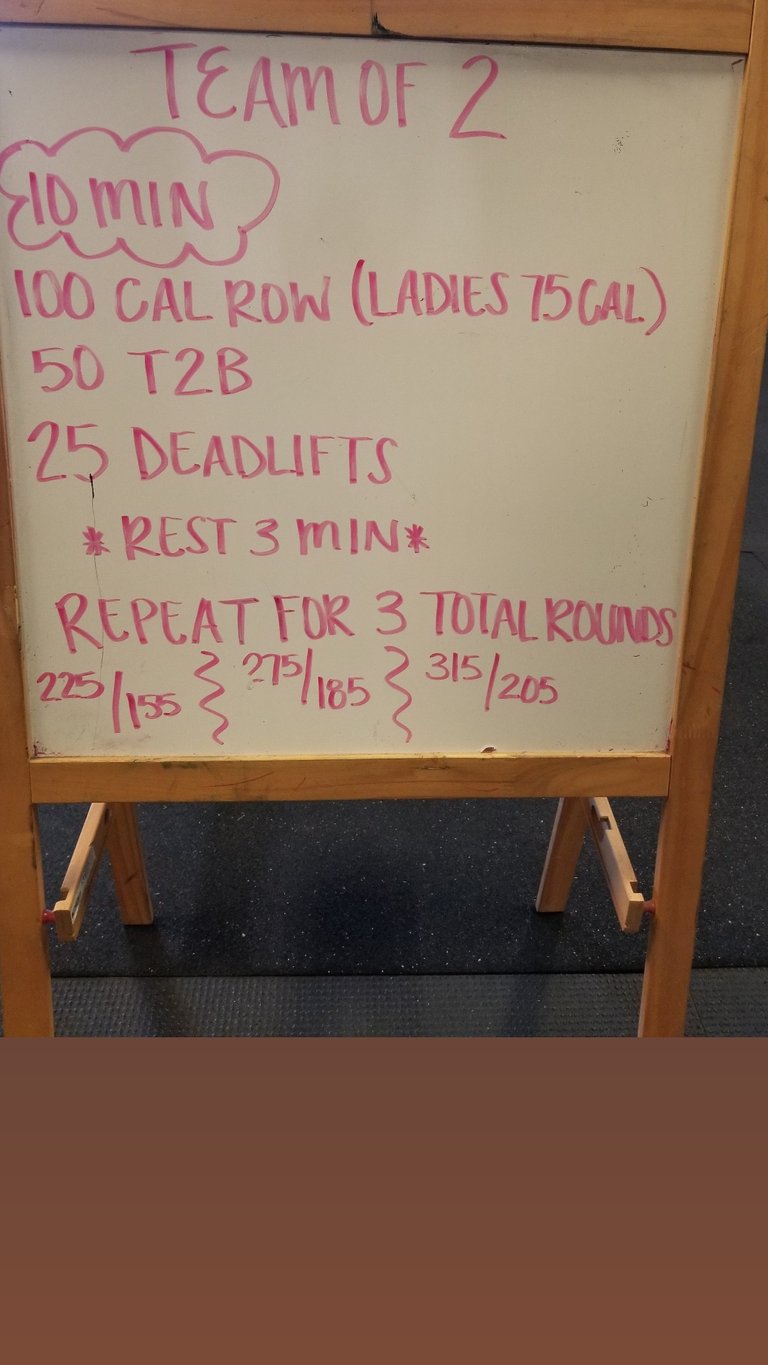 TEAM OF 2
10 MIN
100 CAL ROW (LADIES 75 CAL)
50 T2B
25 DEADLIFTS
* REST 3 MIN *
REPEAT FOR 3 TOTAL ROUNDS
225/155 275/185 315/205